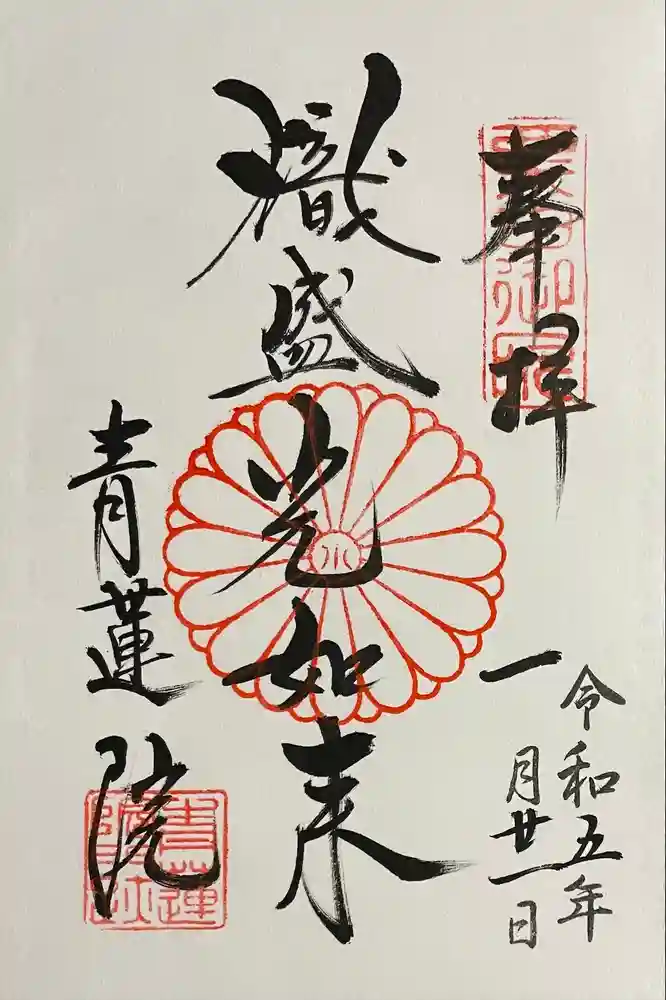 奉拝
令和五年
一月廿一日
熾盛光如来
青蓮院
青蓮
院門跡